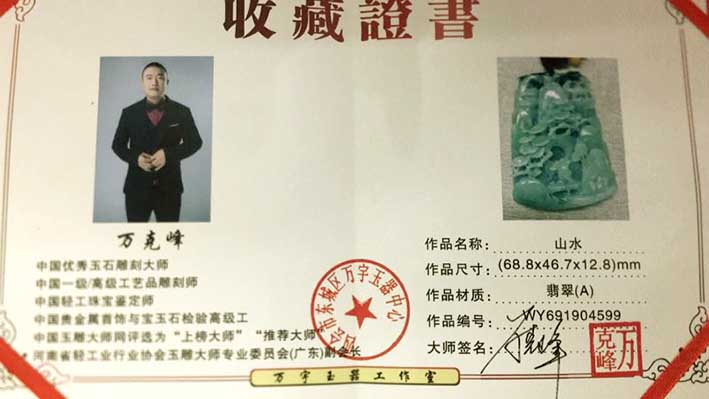 收藏證書
万克峰
中国优秀玉石雕刻大师
中国一级/高级工艺品雕刻师
中国轻工珠宝鉴定师
中国贵金属首饰与宝玉石检验高级工
中国玉雕大师网评选为“上榜大师”“推荐大师”
河南省轻工业行业协会玉雕大师专业委员会(广东)副会长
四会市东城区万宇玉器中心
作品名称: 山水
作品尺寸: (68.8x46.7x12.8)mm
作品材质: 翡翠(A)
作品编号: WY691904599
大师签名:
万克峰
万宇玉器工作室